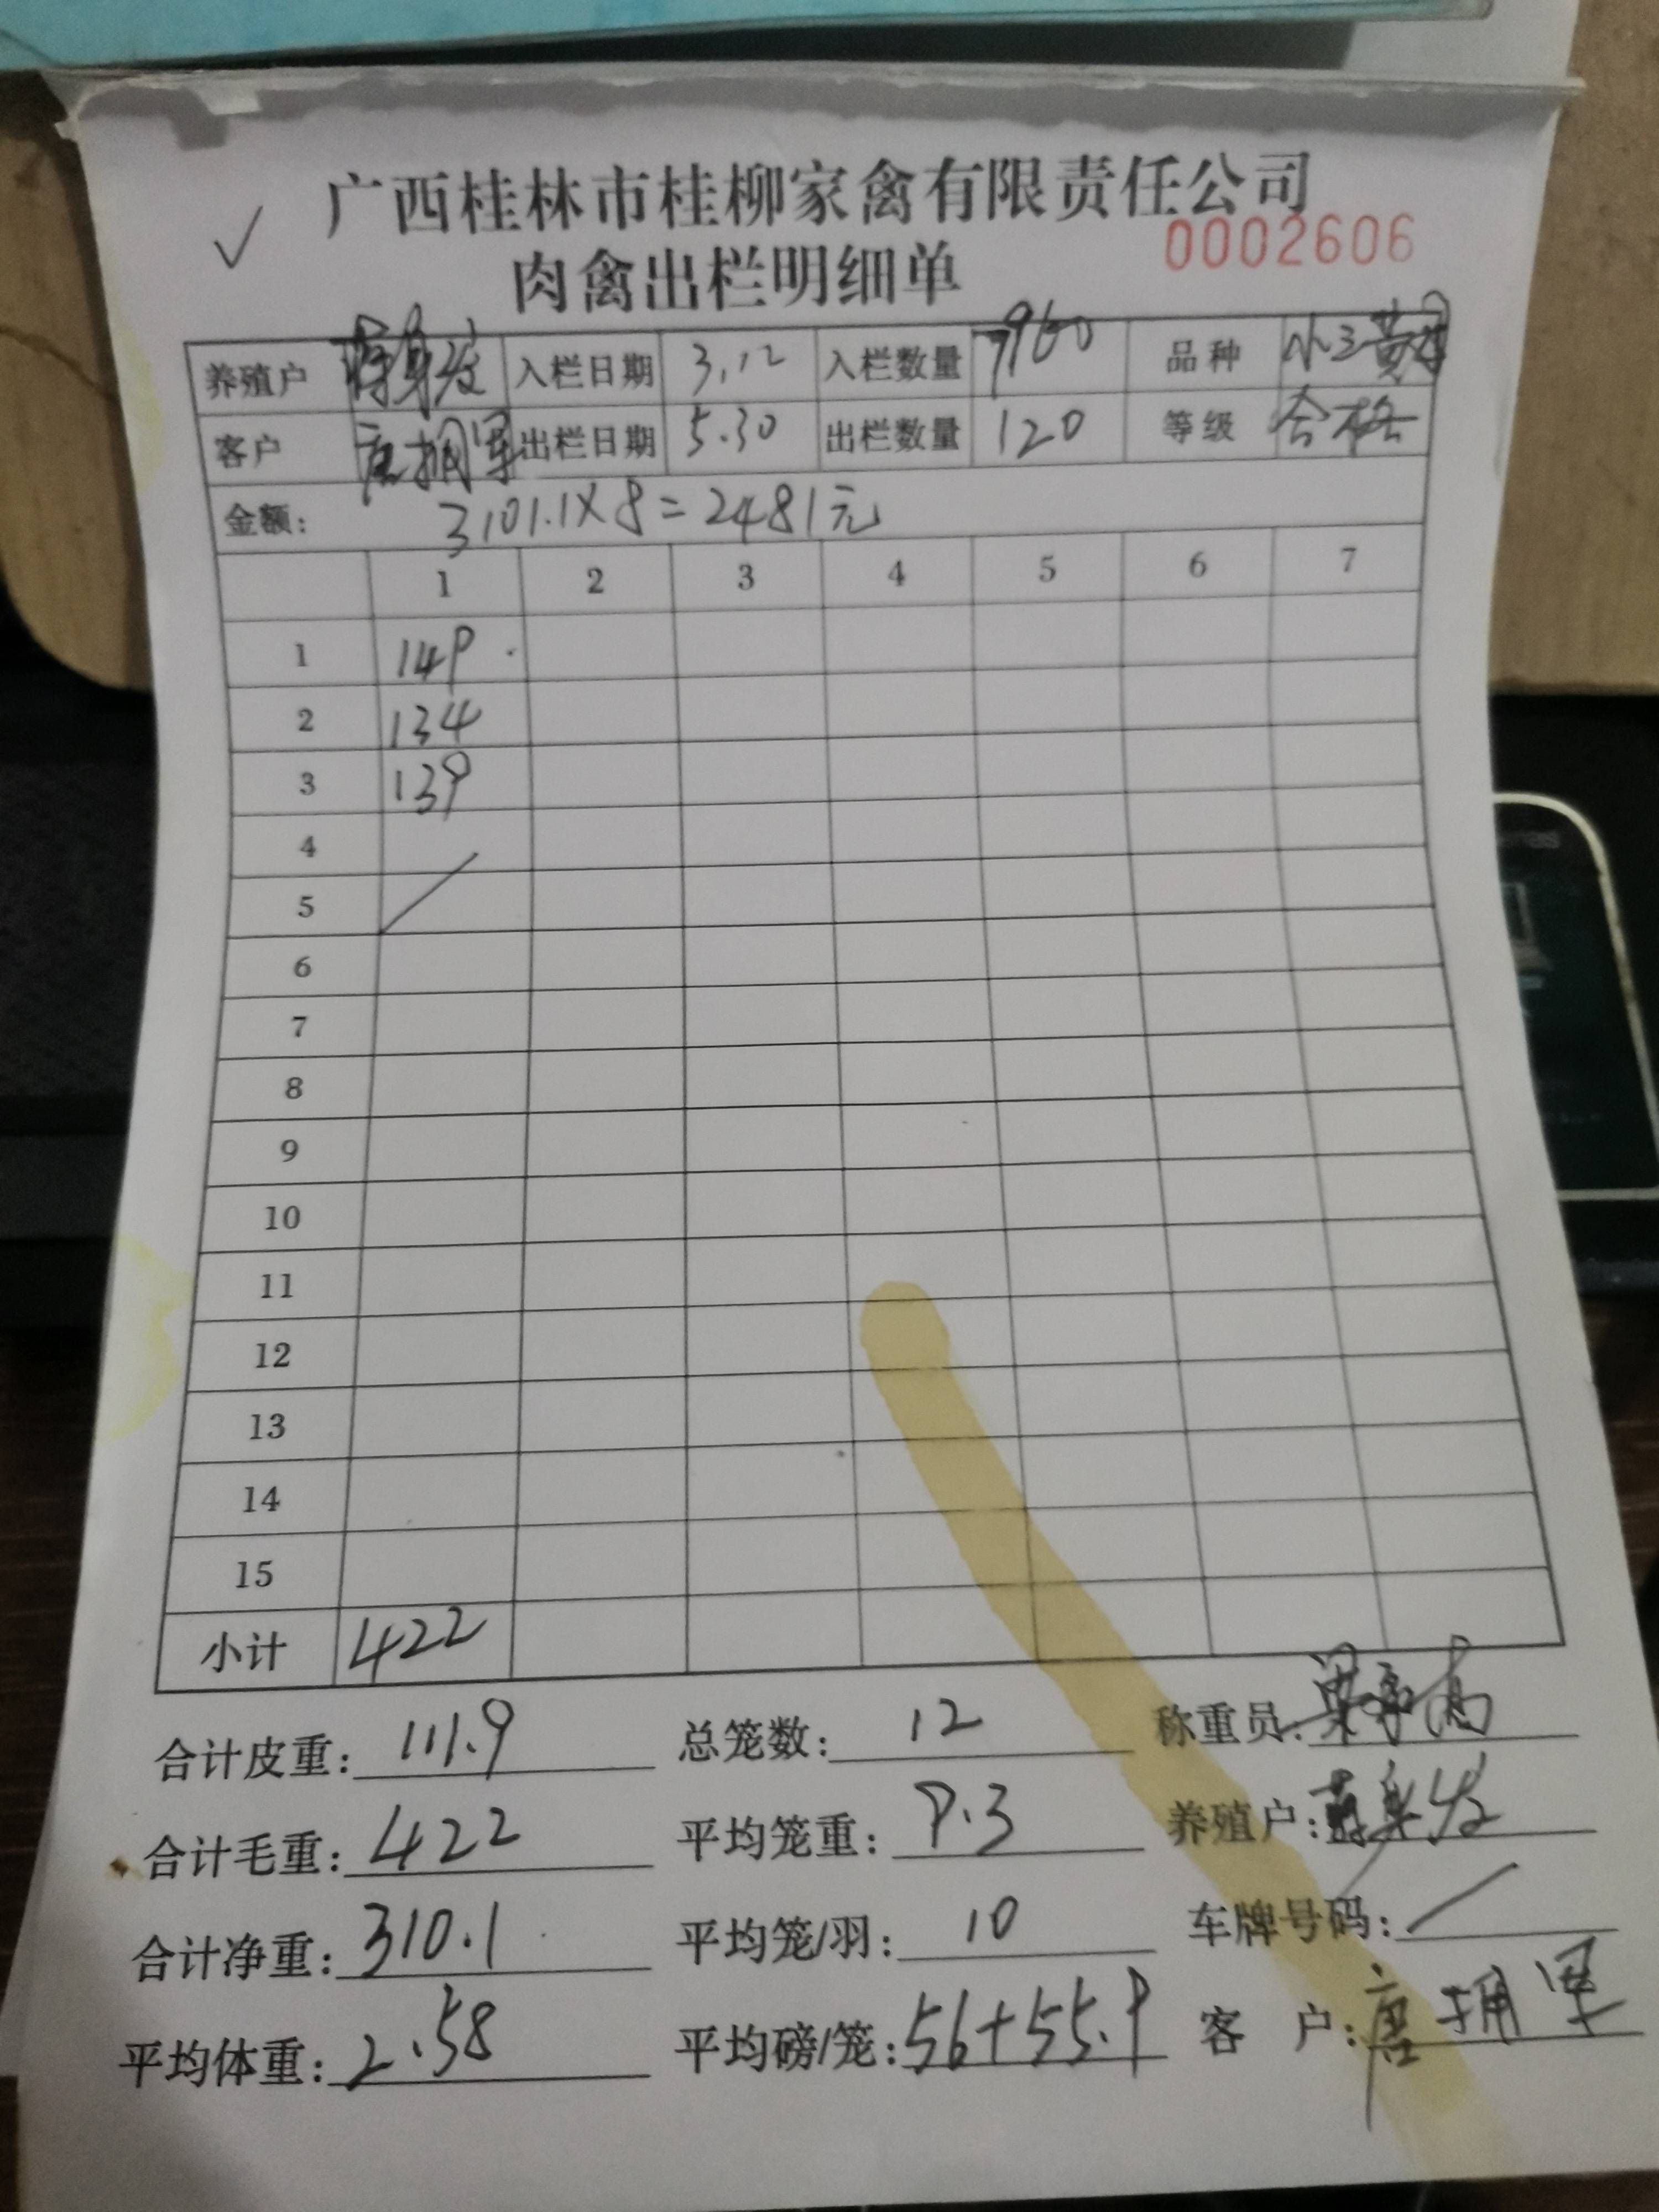 广西桂林市桂柳家禽有限责任公司
0002606
肉禽出栏明细单
养殖户 入栏日期 3.12 入栏数量 7960 品种 小三黄
客户 唐拥军 出栏日期 5.30 出栏数量 120 等级 合格
金额: 3101.1X8=2481元
1 2 3 4 5 6 7
1 149
2 134
3 139
4
5
6
7
8
9
10
11
12
13
14
15
小计 422
合计皮重: 111.9 总笼数: 12 称重员:
合计毛重: 422 平均笼重: 9.3 养殖户:
合计净重: 310.1 平均笼/羽: 10 车牌号码: /
平均体重: 2.58 平均磅/笼: 56+55.9 客 户: 唐拥军